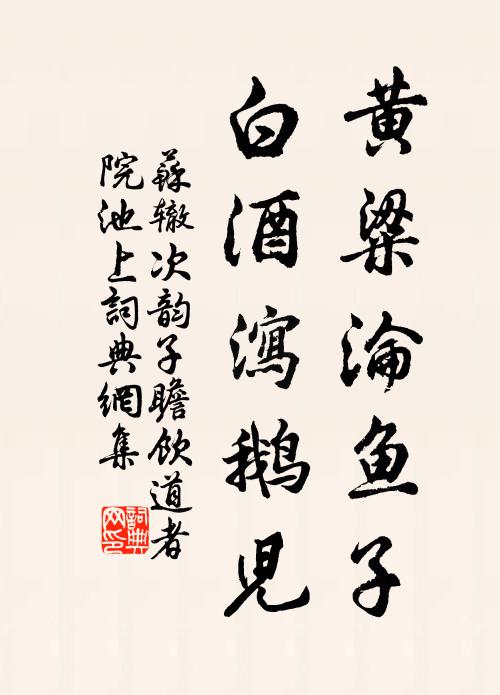 黄粱淪鱼子
白酒瀉鹅児
蘇辙次韵子瞻飲道者
院池上詞典網集
詞典
网印